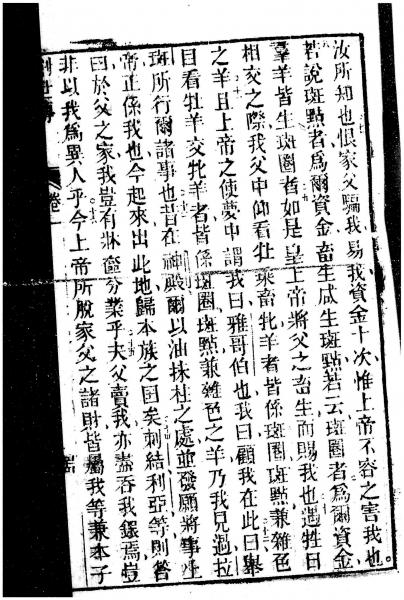 汝所知也恨家父騙我易我資金十次惟上帝不容之害我也
若說斑點者為爾資金畜生咸生斑點若云斑圈者為爾資金
羣羊皆生斑圈者如是皇上帝將父之畜生而賜我也遇牲日
相交之際我父中仰看牡乘畜牝羊者皆係斑圈斑點兼雜色
之羊且上帝之使夢中謂我曰雅哥伯也我曰顧我在此曰舉
目看牡羊交牝羊者皆係斑圈斑點兼雜色之羊乃我見過拉
斑所行爾諸事也昔在神殿爾以油抹柱之處並發願將事上
帝正係我也今起來出此地歸本族之國矣剌結利亞等則答
曰於父之家我豈有牀奩分業乎夫父賣我亦盡吞我銀焉豈
非以我為異人乎今上帝所脫家父之諸財皆屬我等兼本子
創世傳 卷